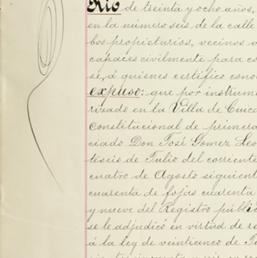 Rio de treinta y ocho años,
en la número seis de la calle
bos propietarios, vecinos
capaces civilmente para co
se, á quienes certifico cono
expuso: que por instrume
rizado en la Villa de
Constitucional de primera
ciado Don José Gomez
de Julio del corriente
cuatro de Agosto siguient
cuarenta de fojas cuarenta
y nueve del Registro públic
se le adjudicó en virtud de
á la ley de veinticinco de